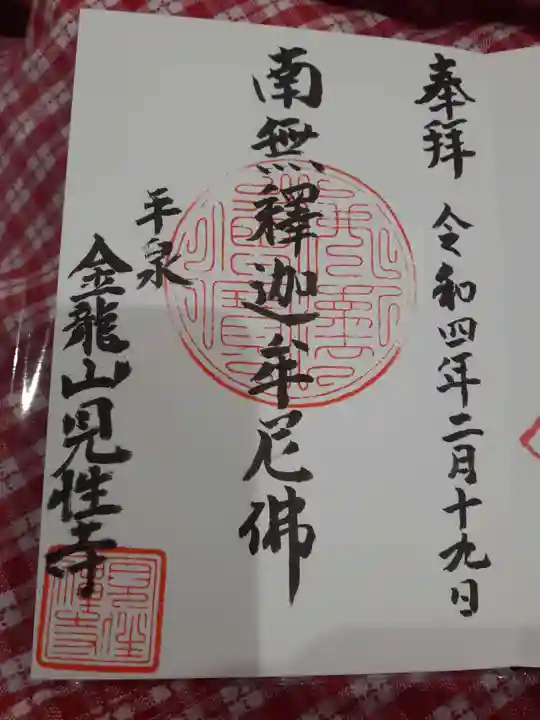 奉拜 令和四年二月十九日
南無釋迦牟尼佛
平泉
金龍山見性寺